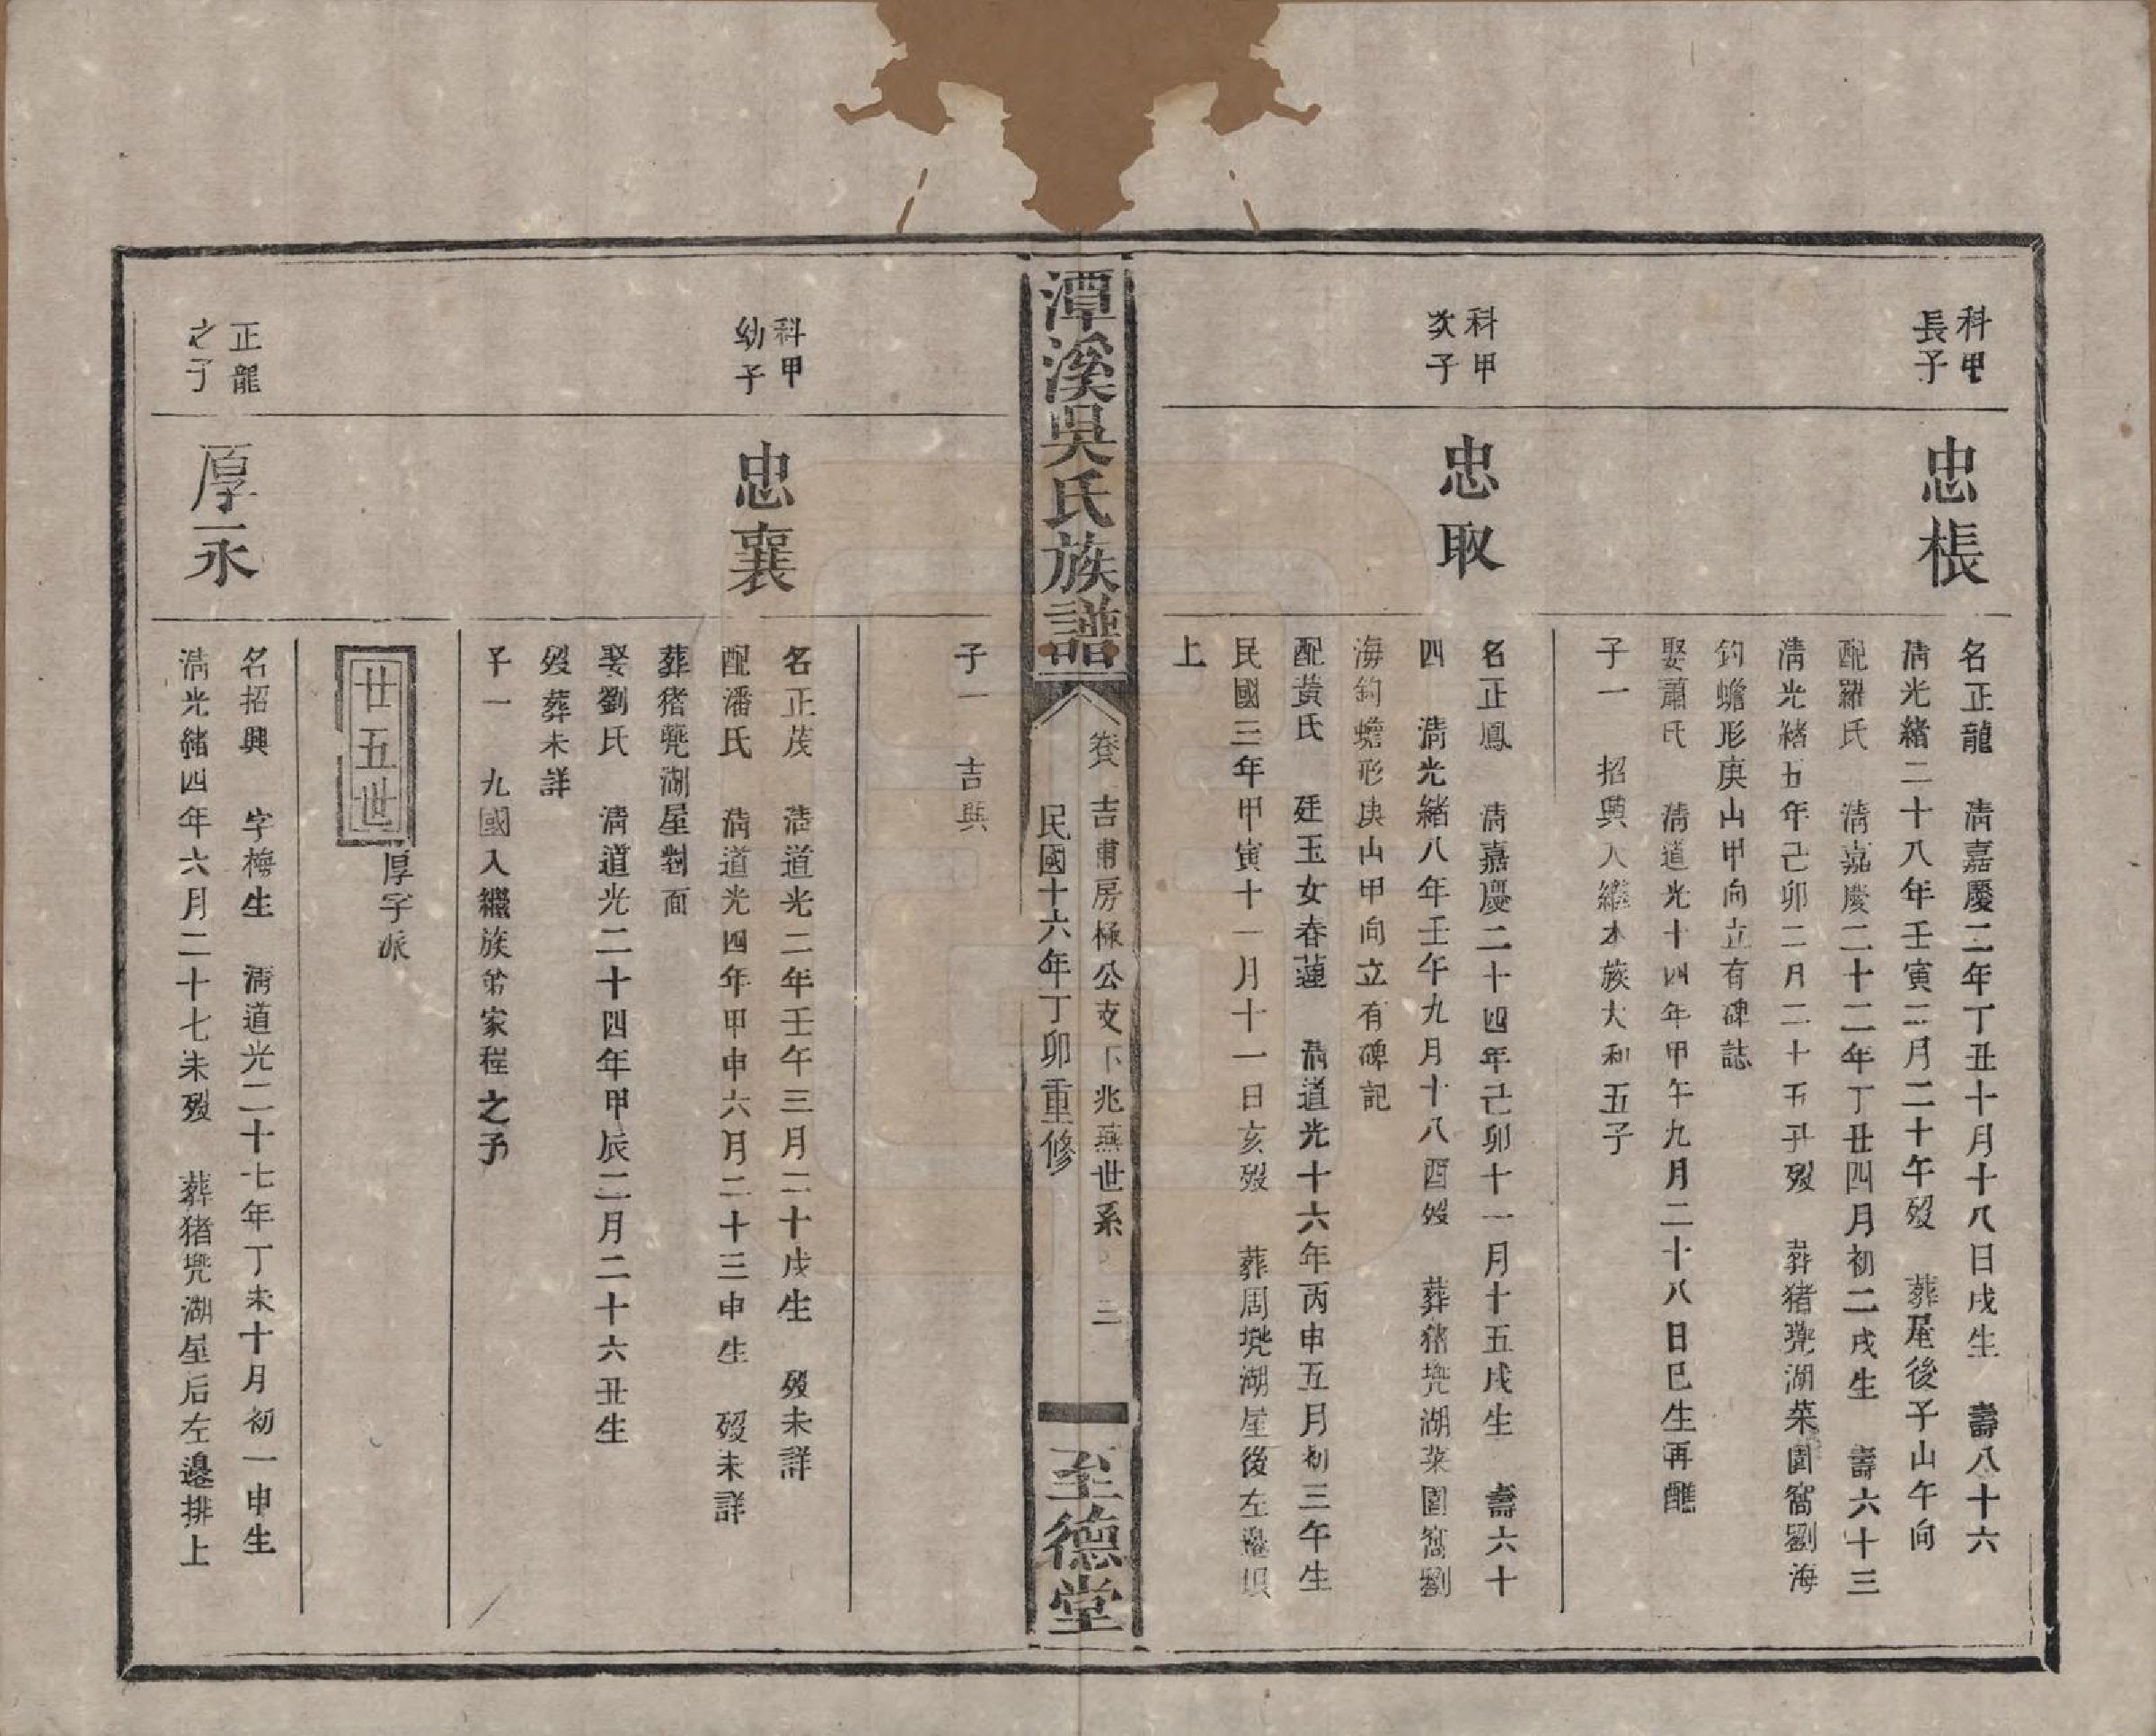 科甲
長子
忠棖
名正龍 清嘉慶二年丁丑十月十八日戌生 壽八十六
清光緒二十八年壬寅二月二十午歿 葬屋後子山午向
配羅氏 清嘉慶二十二年丁丑四月初二戌生 壽六十三
清光緒五年己卯二月二十五丑歿 葬猪㙙湖菜園窩劉海
釣蟾形庚山甲向立有碑誌
娶蕭氏 清道光十四年甲午九月二十八日巳生再醮
子一 招興入繼本族大和五子
科甲
次子
忠取
名正鳳 清嘉慶二十四年己卯十一月十五戌生 壽六十
四 清光緒八年壬午九月十八酉歿 葬猪㙙湖菜園窩劉
海釣蟾形庚山甲向立有碑記
配黃氏 廷玉女春蓮 清道光十六年丙申五月初三午生
民國三年甲寅十一月十一日亥歿 葬周㙙湖星後左邊垻
上
潭溪吳氏族譜
卷 吉甫房極公支下兆燕世系 三
民國十六年丁卯重修
至德堂
子一 吉興
科甲
幼子
忠襄
名正茂 清道光二年壬午三月二十戌生 歿未詳
配潘氏 清道光四年甲申六月二十三申生 歿未詳
葬猪㙙湖星對面
娶劉氏 清道光二十四年甲辰二月二十六丑生
歿葬未詳
子一 九國入繼族弟家程之子
廿五世
厚字派
正龍
之子
厚永
名招興 字梅生 清道光二十七年丁未十月初一申生
清光緒四年六月二十七未歿 葬猪㙙湖星后左邊排上